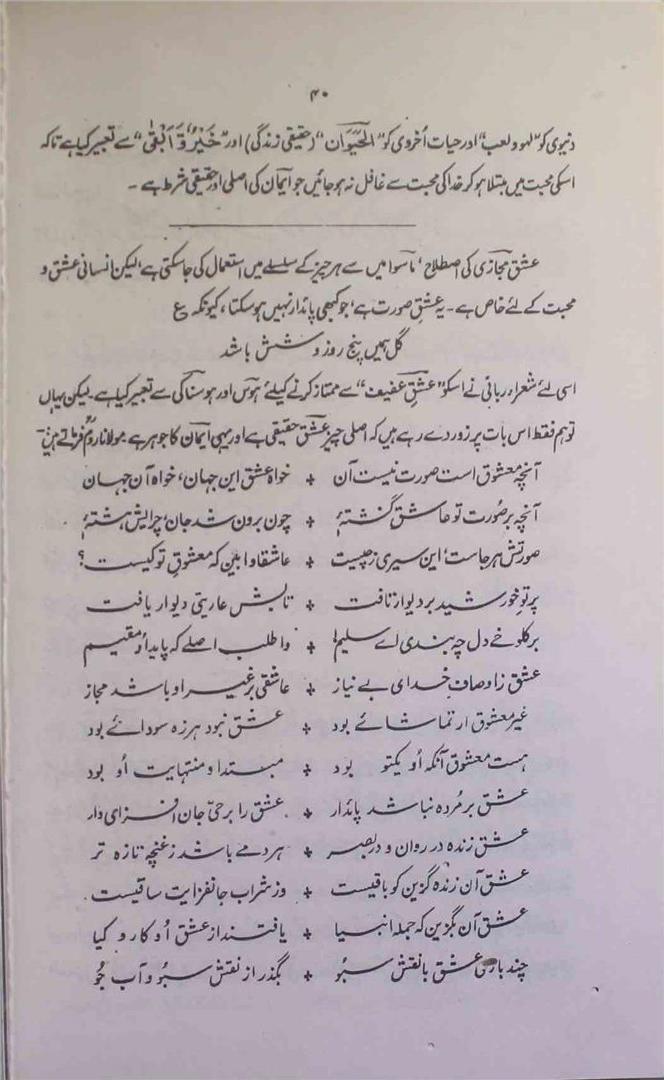 ۴۰
دنیوی کو "لہو و لعب" اور حیات اُخروی کو "الحَیَوَان" (حقیقی زندگی) اور "خَیْرٌ وَّ اَبْقٰی" سے تعبیر کیا ہے تاکہ
اسکی محبت میں مبتلا ہو کر خدا کی محبت سے غافل نہ ہو جائیں جو ایمان کی اصلی اور حقیقی شرط ہے ۔
عشق مجازی کی اصطلاح، ماسوا میں سے ہر چیز کے سلسلے میں استعمال کی جا سکتی ہے، لیکن انسانی عشق و
محبت کے لئے خاص ہے ۔ یہ عشقِ صورت ہے، جو کبھی پائدار نہیں ہو سکتا، کیونکہ ع
گل ہمیں پنج روز و شش باشد
اسی لئے شعراء ربانی نے اسکو "عشق عفیف" سے ممتاز کرنے کیلئے ہوس اور ہوسناکی سے تعبیر کیا ہے ۔ لیکن یہاں
تو ہم فقط اس بات پر زور دے رہے ہیں کہ اصلی چیز عشق حقیقی ہے اور یہی ایمان کا جوہر ہے ۔ مولانا رومؒ فرماتے ہیں :-
آنچہ معشوق است صورت نیست آن + خواہ عشق این جہان، خواہ آن جہان
آنچہ بر صُورت تو عاشق گشتۂ + چون برون شد جان، چرایش ہشتۂ
صورتش برجاست، این سیری ز چیست + عاشقا وا بین کہ معشوقِ تو کیست ؟
پرتوِ خورشید بر دیوار تافت + تابش عاریتی دیوار یافت
بر کلوخے دل چہ بندی اے سلیم! + وا طلب اصلے کہ پاید او مقیم
عشق ز اوصافِ خدای بے نیاز + عاشقی بر غیر او باشد مجاز
غیر معشوق ار تماشائے بود + عشق نبود ہرزہ سودائے بود
ہست معشوق آنکہ اُو یکتو بود + مبتدا و منتہایت اُو بود
عشق بر مُردہ نباشد پائدار + عشق را بر حیّ جان افزای دار
عشق زندہ در روان و در بصر + ہر دمے باشد ز غنچہ تازہ تر
عشق آن زندہ گزین کو باقیست + وز شراب جانفزایت ساقیست
عشق آن بگزین کہ جملہ انبیا + یافتند از عشق اُو کار و کیا
چند بازی عشق با نقش سبُو + بگذر از نقش سبُو و آب جُو